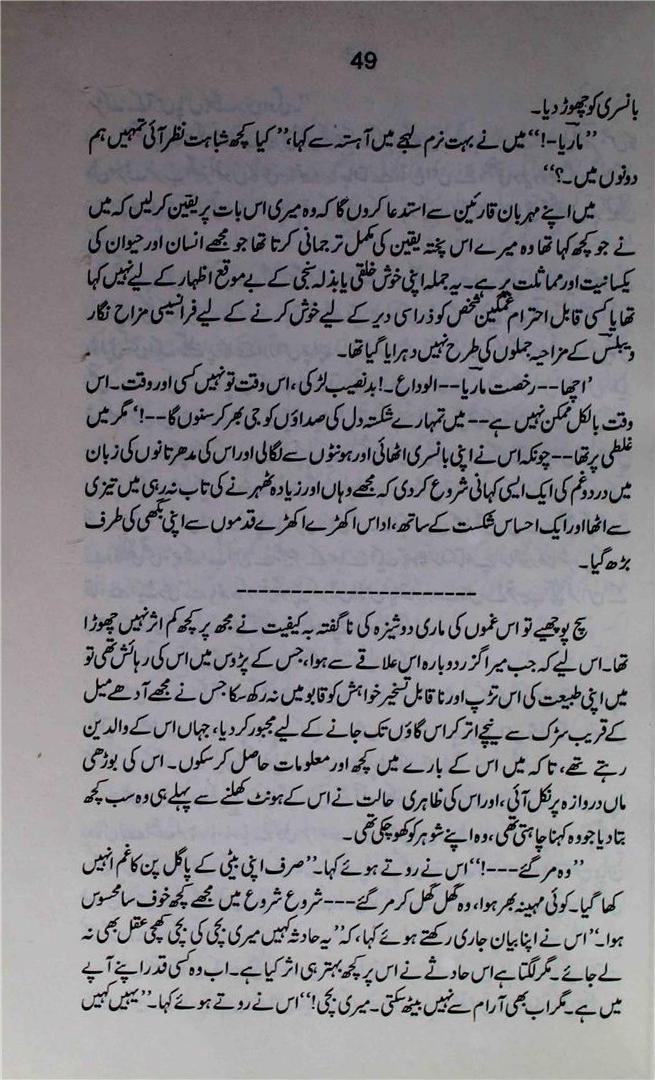 49
بانسری کو چھوڑ دیا۔
”ماریا-!“ میں نے بہت نرم لہجے میں آہستہ سے کہا، ”کیا کچھ شباہت نظر آئی تمہیں ہم
دونوں میں۔؟“
میں اپنے مہربان قارئین سے استدعا کروں گا کہ وہ میری اس بات پر یقین کرلیں کہ میں
نے جو کچھ کہا تھا وہ میرے اس پختہ یقین کی مکمل ترجمانی کرتا تھا جو مجھے انسان اور حیوان کی
یکسانیت اور مماثلت پر ہے۔ یہ جملہ اپنی خوش خلقی یا بذلہ سنجی کے بے موقع اظہار کے لیے نہیں کہا
تھا یا کسی قابل احترام غمگین شخص کو ذرا سی دیر کے لیے خوش کرنے کے لیے فرانسیسی مزاح نگار
ویبلس کے مزاحیہ جملوں کی طرح نہیں دہرایا گیا تھا۔
’اچھا-- رخصت ماریا-- الوداع۔! بدنصیب لڑکی، اس وقت تو نہیں کسی اور وقت۔ اس
وقت بالکل ممکن نہیں ہے-- میں تمہارے شکستہ دل کی صداؤں کو جی بھر کر سنوں گا--!‘ مگر میں
غلطی پر تھا-- چونکہ اس نے اپنی بانسری اٹھائی اور ہونٹوں سے لگالی اور اس کی مدھر تانوں کی زبان
میں درد و غم کی ایک ایسی کہانی شروع کردی کہ مجھے وہاں اور زیادہ ٹھہرنے کی تاب نہ رہی میں تیزی
سے اٹھا اور ایک احساس شکست کے ساتھ، اداس اکھڑے اکھڑے قدموں سے اپنی بگھی کی طرف
بڑھ گیا۔
------------------------
سچ پوچھیے تو اس غموں کی ماری دوشیزہ کی ناگفتہ بہ کیفیت نے مجھ پر کچھ کم اثر نہیں چھوڑا
تھا۔ اس لیے کہ جب میرا گزر دوبارہ اس علاقے سے ہوا، جس کے پڑوس میں اس کی رہائش تھی تو
میں اپنی طبیعت کی اس تڑپ اور ناقابل تسخیر خواہش کو قابو میں نہ رکھ سکا جس نے مجھے آدھے میل
کے قریب سڑک سے نیچے اتر کر اس گاؤں تک جانے کے لیے مجبور کردیا، جہاں اس کے والدین
رہتے تھے، تاکہ میں اس کے بارے میں کچھ اور معلومات حاصل کرسکوں۔ اس کی بوڑھی
ماں دروازہ پر نکل آئی، اور اس کی ظاہری حالت نے اس کے ہونٹ کھلنے سے پہلے ہی وہ سب کچھ
بتا دیا جو وہ کہنا چاہتی تھی، وہ اپنے شوہر کو کھو چکی تھی۔
”وہ مر گئے---!“ اس نے روتے ہوئے کہا۔ ”صرف اپنی بیٹی کے پاگل پن کا غم انہیں
کھا گیا۔ کوئی مہینہ بھر ہوا، وہ گھل گھل کر مر گئے--- شروع شروع میں مجھے کچھ خوف سا محسوس
ہوا۔“ اس نے اپنا بیان جاری رکھتے ہوئے کہا، کہ ”یہ حادثہ کہیں میری بچی کی بچی کھچی عقل بھی نہ
لے جائے۔ مگر لگتا ہے اس حادثے نے اس پر کچھ بہتر ہی اثر کیا ہے۔ اب وہ کسی قدر اپنے آپے
میں ہے۔ مگر اب بھی آرام سے نہیں بیٹھ سکتی۔ میری بچی!“ اس نے روتے ہوئے کہا۔ ”یہیں کہیں